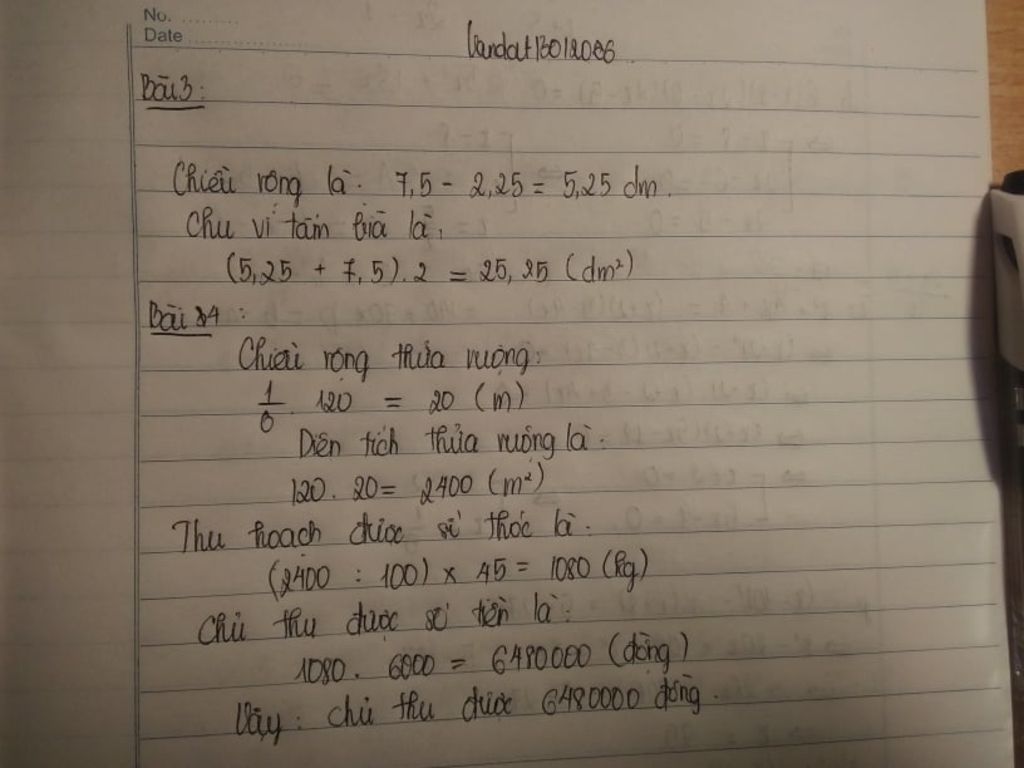 No. ..........
Date ....................
Vandat13012006
Bài 3:
Chiều rộng là: 7,5 - 2,25 = 5,25 dm.
Chu vi tấm bìa là,
(5,25 + 7,5).2 = 25,25 (dm²)
Bài 4:
Chiều rộng thửa ruộng:
1/6 . 120 = 20 (m)
Diện tích thửa ruộng là:
120. 20= 2400 (m²)
Thu hoạch được số thóc là:
(2400 : 100) x 45 = 1080 (kg)
Chủ thu được số tiền là:
1080. 6000 = 6480000 (đồng)
Vậy: chủ thu được 6480000 đồng.